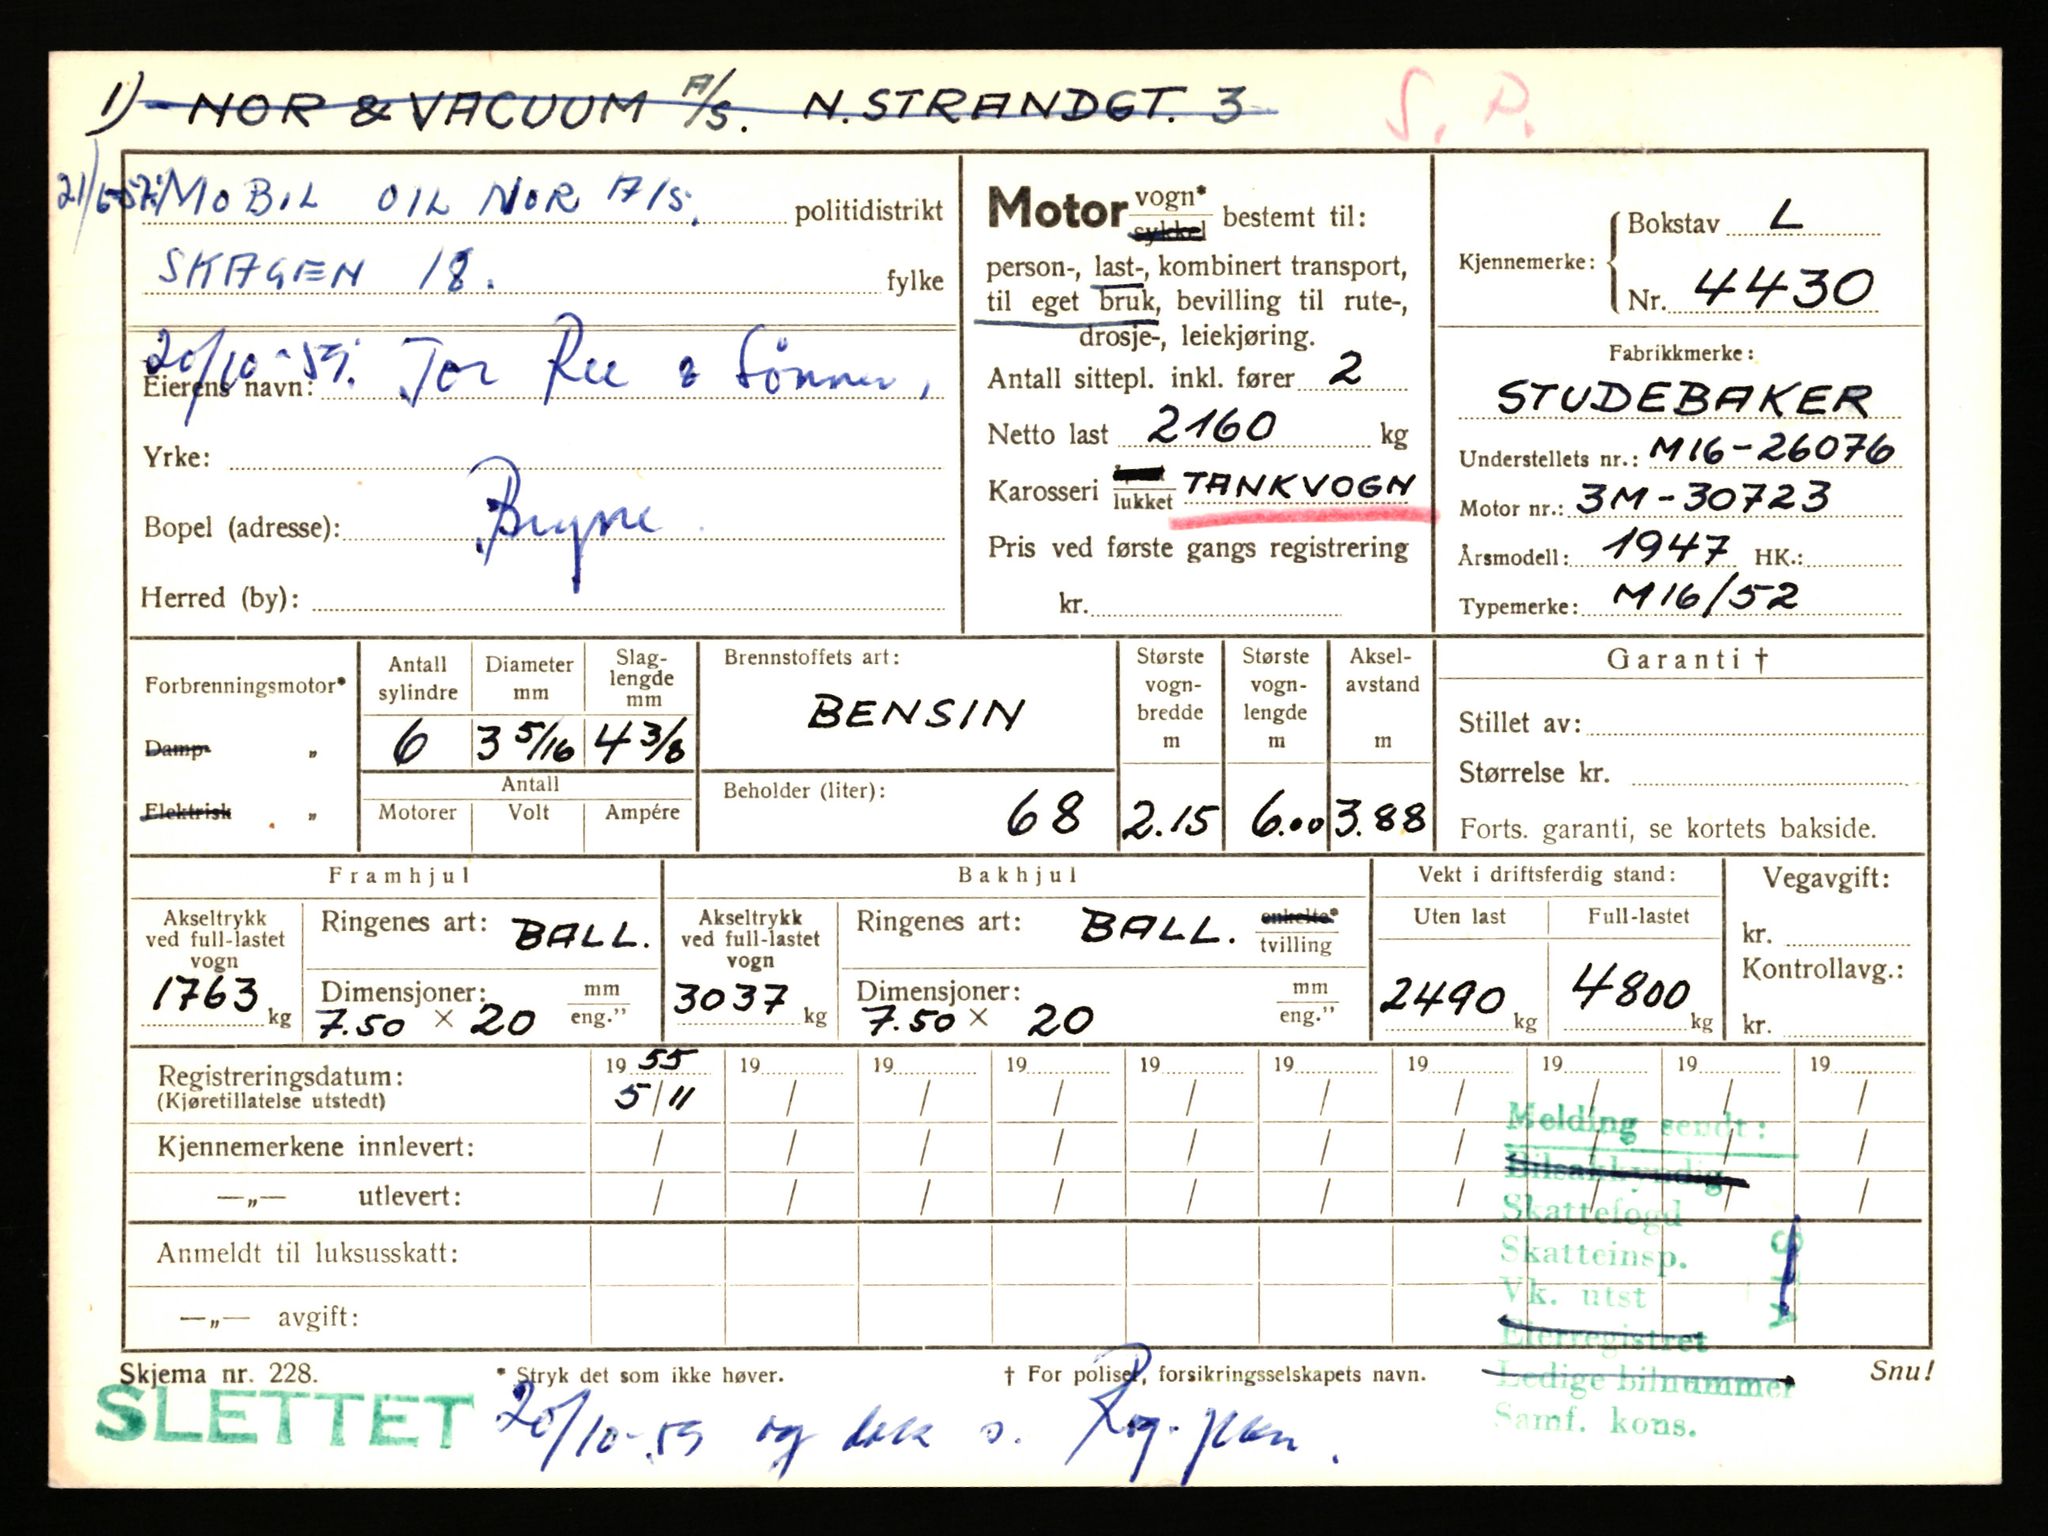 1) NOR & VACUUM A/S. N. STRANDGT. 3
S. P.
MOBIL OIL NOR A/S. politidistrikt
SKAGEN 18. fylke
20/10-59. Tor Ree & Sønner,
Eierens navn:
Yrke:
Bopel (adresse): Bryne
Herred (by):
Motor vogn* sykkel bestemt til:
person-, last-, kombinert transport,
til eget bruk, bevilling til rute-,
drosje-, leiekjøring.
Antall sittepl. inkl. fører 2
Netto last 2160 kg
Karosseri lukket TANKVOGN
Pris ved første gangs registrering
kr.
Kjennemerke: Bokstav L
Nr. 4430
Fabrikkmerke:
STUDEBAKER
Understellets nr.: M16-26076
Motor nr.: 3M-30723
Årsmodell: 1947 HK.:
Typemerke: M16/52
Forbrenningsmotor*
Damp- „
Elektrisk „
Antall sylindre
6
Diameter mm
3 5/16
Slaglengde mm
4 3/8
Antall
Motorer Volt Ampére
Brennstoffets art:
BENSIN
Beholder (liter):
68
Største vogn-bredde m
2.15
Største vogn-lengde m
6.00
Aksel-avstand m
3.88
Garanti †
Stillet av:
Størrelse kr.
Forts. garanti, se kortets bakside.
Framhjul
Akseltrykk
ved full-lastet
vogn
1763 kg
Ringenes art: BALL.
Dimensjoner: mm
7.50 × 20 eng."
Bakhjul
Akseltrykk
ved full-lastet
vogn
3037 kg
Ringenes art: BALL. enkelte*
tvilling
Dimensjoner: mm
7.50 × 20 eng."
Vekt i driftsferdig stand:
Uten last Full-lastet
2490 kg 4800 kg
Vegavgift:
kr.
Kontrollavg.:
kr.
Registreringsdatum: 1955 19 19 19 19 19 19 19 19 19
(Kjøretillatelse utstedt) 5/11 / / / / / / / / /
Kjennemerkene innlevert: / / / / / / / / / /
—„— utlevert: / / / / / / / / / /
Anmeldt til luksusskatt:
—„— avgift:
Melding sendt:
Bilsakkyndig
Skattefogd
Skatteinsp.
Vk. utst
Eierregistret
Ledige bilnummer
Samf. kons.
Skjema nr. 228. * Stryk det som ikke høver. † For poliser, forsikringsselskapets navn. Snu!
SLETTET 20/10-59 og